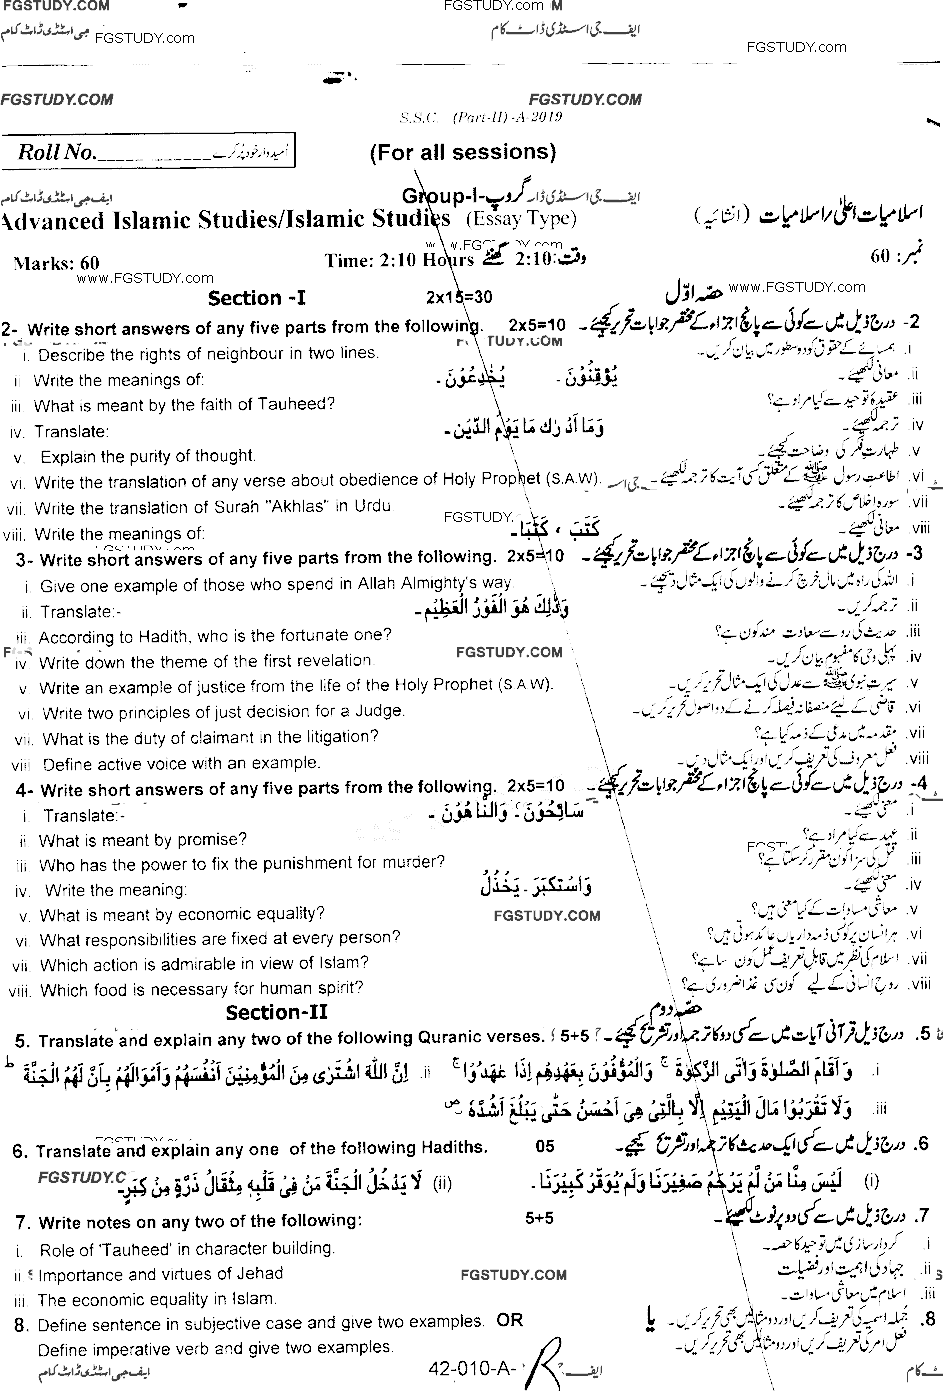 FGSTUDY.COM FGSTUDY.com M
ایف جی اسٹڈی ڈاٹ کام
FGSTUDY.com FGSTUDY.com
FGSTUDY.COM FGSTUDY.COM
S.S.C. (Part-II)-A-2019
Roll No. امیدوار خود پُر کرے
(For all sessions)
Group-I-گروپ
Advanced Islamic Studies/Islamic Studies (Essay Type) اسلامیات اعلیٰ/اسلامیات (انشائیہ)
Marks: 60 Time: 2:10 Hours وقت: 2:10 گھنٹے نمبر: 60
www.FGSTUDY.com
Section -I 2x15=30 حصہ اوّل www.FGSTUDY.com
2- Write short answers of any five parts from the following. 2x5=10 2- درج ذیل میں سے کوئی سے پانچ اجزاء کے مختصر جوابات تحریر کیجئے۔
i. Describe the rights of neighbour in two lines. i. ہمسائے کے حقوق کو دو سطور میں بیان کریں۔
ii Write the meanings of: يُوْقِنُوْنَ - يُخٰدِعُوْنَ - ii. معانی لکھیئے۔
iii. What is meant by the faith of Tauheed? iii. عقیدہ توحید سے کیا مراد ہے؟
iv. Translate: وَمَا اَدْرٰكَ مَا يَوْمُ الدِّيْنِ - iv. ترجمہ لکھیئے۔
v. Explain the purity of thought. v. طہارتِ فکر کی وضاحت کیجئے۔
vi. Write the translation of any verse about obedience of Holy Prophet (S.A.W). vi. اطاعت رسول ﷺ کے متعلق کسی آیت کا ترجمہ لکھیئے۔
vii. Write the translation of Surah "Akhlas" in Urdu vii. سورہ اخلاص کا ترجمہ لکھیئے۔
viii. Write the meanings of: كَتَبَ ، كَتَبَا- viii. معانی لکھیئے۔
3- Write short answers of any five parts from the following. 2x5=10 3- درج ذیل میں سے کوئی سے پانچ اجزاء کے مختصر جوابات تحریر کیجئے۔
i. Give one example of those who spend in Allah Almighty's way i. اللہ کی راہ میں مال خرچ کرنے والوں کی ایک مثال دیجئے۔
ii. Translate:- وَذٰلِكَ هُوَ الْفَوْزُ الْعَظِيْمُ - ii. ترجمہ کریں۔
iii. According to Hadith, who is the fortunate one? iii. حدیث کی رو سے سعادت مند کون ہے؟
iv Write down the theme of the first revelation. FGSTUDY.COM iv. پہلی وحی کا مفہوم بیان کریں۔
v. Write an example of justice from the life of the Holy Prophet (S.A.W). v. سیرت نبوی ﷺ سے عدل کی ایک مثال تحریر کریں۔
vi. Write two principles of just decision for a Judge. vi. قاضی کے لیئے منصفانہ فیصلہ کرنے کے دو اصول تحریر کریں۔
vii. What is the duty of claimant in the litigation? vii. مقدمہ میں مدعی کے ذمہ کیا ہے؟
viii Define active voice with an example. viii. فعل معروف کی تعریف کریں اور ایک مثال دیں۔
4- Write short answers of any five parts from the following. 2x5=10 4- درج ذیل میں سے کوئی سے پانچ اجزاء کے مختصر جوابات تحریر کیجئے۔
i. Translate:- سَائِحُوْنَ ؛ وَالنَّاهُوْنَ - i. معنی لکھیئے۔
ii. What is meant by promise? ii. عہد سے کیا مراد ہے؟
iii. Who has the power to fix the punishment for murder? iii. قتل کی سزا کون مقرر کر سکتا ہے؟
iv. Write the meaning: وَاسْتَكْبَرَ - يَخْذُلُ iv. معنی لکھیئے۔
v. What is meant by economic equality? FGSTUDY.COM v. معاشی مساوات کے کیا معنی ہیں؟
vi. What responsibilities are fixed at every person? vi. ہر انسان پر کونسی ذمہ داریاں عائد ہوتی ہیں؟
vii. Which action is admirable in view of Islam? vii. اسلام کی نظر میں قابلِ تعریف عمل کون سا ہے؟
viii. Which food is necessary for human spirit? viii. روحِ انسانی کے لیے کون سی غذا ضروری ہے؟
Section-II حصہ دوم
5. Translate and explain any two of the following Quranic verses. (5+5) 5. درج ذیل قرآنی آیات میں سے کسی دو کا ترجمہ اور تشریح کیجئے۔
i. وَاَقَامَ الصَّلٰوةَ وَاٰتَى الزَّكٰوةَ ۚ وَالْمُوْفُوْنَ بِعَهْدِهِمْ اِذَا عٰهَدُوْا ۚ ii. اِنَّ اللّٰهَ اشْتَرٰى مِنَ الْمُؤْمِنِيْنَ اَنْفُسَهُمْ وَاَمْوَالَهُمْ بِاَنَّ لَهُمُ الْجَنَّةَ ط
iii. وَلَا تَقْرَبُوْا مَالَ الْيَتِيْمِ اِلَّا بِالَّتِىْ هِىَ اَحْسَنُ حَتّٰى يَبْلُغَ اَشُدَّهٗ ص
6. Translate and explain any one of the following Hadiths. 05 6. درج ذیل میں سے کسی ایک حدیث کا ترجمہ اور تشریح کیجئے۔
(i) لَيْسَ مِنَّا مَنْ لَّمْ يَرْحَمْ صَغِيْرَنَا وَلَمْ يُوَقِّرْ كَبِيْرَنَا۔ (ii) لَا يَدْخُلُ الْجَنَّةَ مَنْ فِىْ قَلْبِهٖ مِثْقَالُ ذَرَّةٍ مِنْ كِبَرٍ۔ FGSTUDY.C
7. Write notes on any two of the following: 5+5 7. درج ذیل میں سے کسی دو پر نوٹ لکھیئے۔
i. Role of 'Tauheed' in character building. i. کردار سازی میں توحید کا حصہ۔
ii Importance and virtues of Jehad FGSTUDY.COM ii. جہاد کی اہمیت اور فضیلت
iii. The economic equality in Islam. iii. اسلام میں معاشی مساوات۔
8. Define sentence in subjective case and give two examples. OR یا 8. جملہ اسمیہ کی تعریف کریں اور دو مثالیں بھی تحریر کریں۔
Define imperative verb and give two examples. فعل امر کی تعریف کریں اور دو مثالیں بھی تحریر کریں۔
42-010-A-R